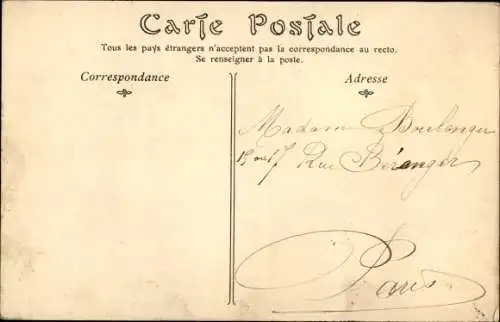 Carte Postale
Tous les pays étrangers n'acceptent pas la correspondance au recto.
Se renseigner à la poste.
Correspondance
Adresse
Madame Boulanger
15 ou 17 Rue Béranger
Paris